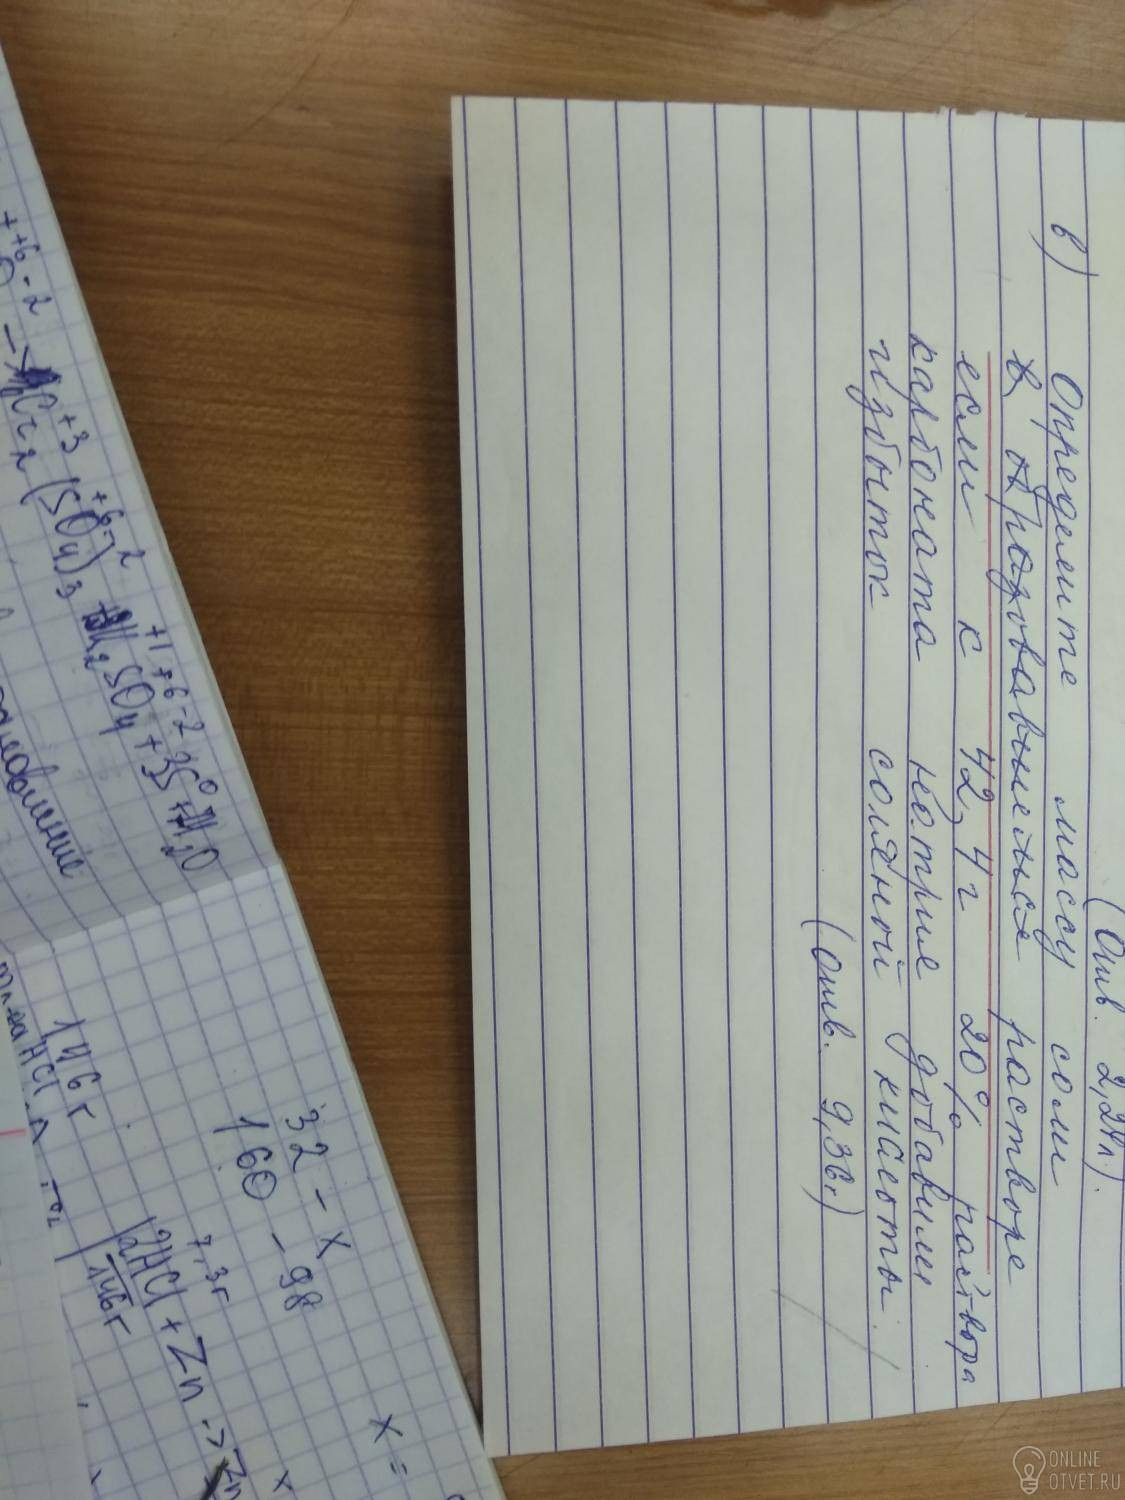 (Отв. 2,24л).
в) Определите массу соли
в образовавшемься растворе
если к 42,4г 20% раствора
карбоната натрия добавили
избыток соляной кислоты.
(Отв. 9,36г)
32 – x
160 – 98
x =
146г
7,3г
2HCl + Zn →
146г
ONLINE
OTVET.RU